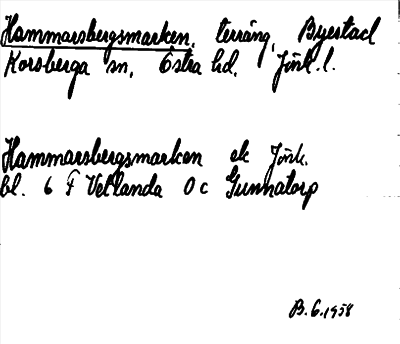 Hammarsbergsmarken, terräng, Byestad
Korsberga sn, Östra hd, Jönk. l.
Hammarsbergsmarken ek Jönk.
bl. 6 F Vetlanda 0 c Gunnatorp
B. G. 1958